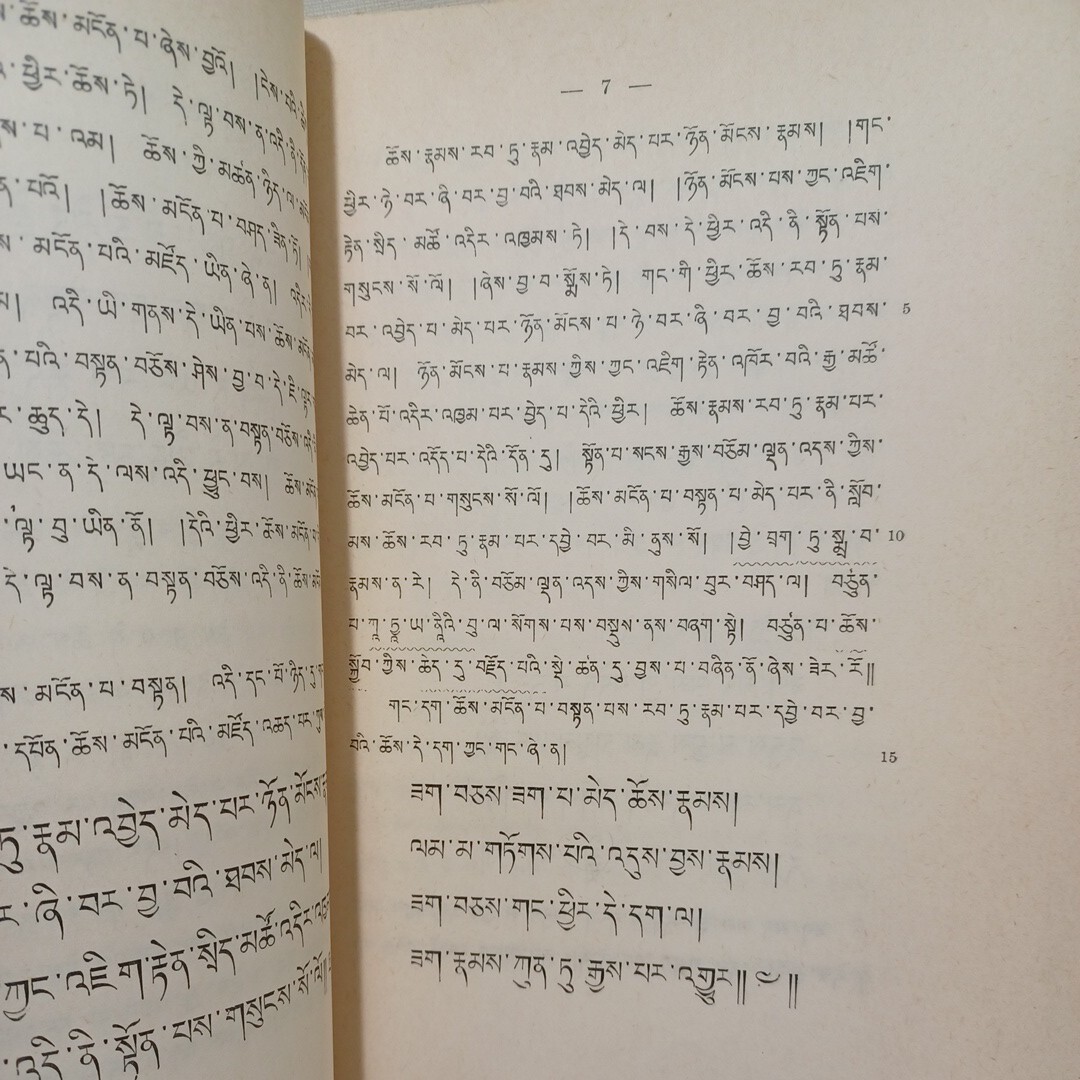 ས་ཆོས་མངོན་པ་ཞེས་བྱའོ། །ངེས་པའི་
འི་ཕྱིར་ཆོས་ཏེ། དེ་ལྟ་བས་ན་འདི་ནི་དོན་
ས་པ་འམ། ཆོས་ཀྱི་མཚན་ཉིད་ལ་
ན་པའོ། །ཆོས་མངོན་པ་བཤད་ཟིན་ཏོ།
ས་མངོན་པའི་མཛོད་ཡིན་ཞེ་ན། འདིར་
མ། འདི་ཡི་གནས་དེ་ཡིན་པས་ཆོས་མངོན་
ན་པའི་བསྟན་བཅོས་ཤེས་བྱ་བ་དེ་ཇི་ལྟར་
ར་ཆུད་དེ། དེ་ལྟ་བས་ན་བསྟན་བཅོས་འདི་
ཡང་ན་དེ་ལས་འདི་ཕྱུང་བས། ཆོས་མངོན་
་ལྟ་བུ་ཡིན་ནོ། །དེའི་ཕྱིར་ཆོས་མངོན་པ་
དེ་ལྟ་བས་ན་བསྟན་བཅོས་འདི་ནི་ཆོས་མངོན་
ས་མངོན་པ་བསྟན། འདི་དང་པོ་ཉིད་དུ་
་དཔོན་ཆོས་མངོན་པའི་མཛོད་འཆད་པར་
ཏུ་རྣམ་འབྱེད་མེད་པར་ཉོན་མོངས་
ར་ཞི་བར་བྱ་བའི་ཐབས་མེད་ལ།
ཀྱང་འཇིག་རྟེན་སྲིད་མཚོ་འདིར་
་འདི་ནི་སྟོན་པས་གསུངས་སོ་ལོ།།
— 7 —
ཆོས་རྣམས་རབ་ཏུ་རྣམ་འབྱེད་མེད་པར་ཉོན་མོངས་རྣམས། །གང་
ཕྱིར་ཉེ་བར་ཞི་བར་བྱ་བའི་ཐབས་མེད་ལ། །ཉོན་མོངས་པས་ཀྱང་འཇིག་
རྟེན་སྲིད་མཚོ་འདིར་འཁྱམས་ཏེ། །དེ་བས་དེ་ཕྱིར་འདི་ནི་སྟོན་པས་
གསུངས་སོ་ལོ། །ཞེས་བྱ་བ་སྨོས་ཏེ། གང་གི་ཕྱིར་ཆོས་རབ་ཏུ་རྣམ་
བར་འབྱེད་པ་མེད་པར་ཉོན་མོངས་པ་ཉེ་བར་ཞི་བར་བྱ་བའི་ཐབས་ 5
མེད་ལ། ཉོན་མོངས་པ་རྣམས་ཀྱིས་ཀྱང་འཇིག་རྟེན་འཁོར་བའི་རྒྱ་མཚོ་
ཆེན་པོ་འདིར་འཁྱམ་པར་བྱེད་པ་དེའི་ཕྱིར། ཆོས་རྣམས་རབ་ཏུ་རྣམ་པར་
འབྱེད་པར་འདོད་པ་དེའི་དོན་དུ། སྟོན་པ་སངས་རྒྱས་བཅོམ་ལྡན་འདས་ཀྱིས་
ཆོས་མངོན་པ་གསུངས་སོ་ལོ། །ཆོས་མངོན་པ་བསྟན་པ་མེད་པར་ནི་སློབ་
མས་ཆོས་རབ་ཏུ་རྣམ་པར་དབྱེ་བར་མི་ནུས་སོ། །བྱེ་བྲག་ཏུ་སྨྲ་བ་ 10
རྣམས་ན་རེ། དེ་ནི་བཅོམ་ལྡན་འདས་ཀྱིས་གསིལ་བུར་བཤད་ལ། བཙུན་
པ་ཀཱ་ཏྱཱ་ཡ་ནཱིའི་བུ་ལ་སོགས་པས་བསྡུས་ནས་བཞག་སྟེ། བཙུན་པ་ཆོས་
སྐྱོབ་ཀྱིས་ཆེད་དུ་བརྗོད་པའི་སྡེ་ཚན་དུ་བྱས་པ་བཞིན་ནོ་ཞེས་ཟེར་རོ།།
གང་དག་ཆོས་མངོན་པ་བསྟན་པས་རབ་ཏུ་རྣམ་པར་དབྱེ་བར་བྱ་
བའི་ཆོས་དེ་དག་ཀྱང་གང་ཞེ་ན། 15
ཟག་བཅས་ཟག་པ་མེད་ཆོས་རྣམས།
ལམ་མ་གཏོགས་པའི་འདུས་བྱས་རྣམས།
ཟག་བཅས་གང་ཕྱིར་དེ་དག་ལ།
ཟག་རྣམས་ཀུན་ཏུ་རྒྱས་པར་འགྱུར།། ༤ །།